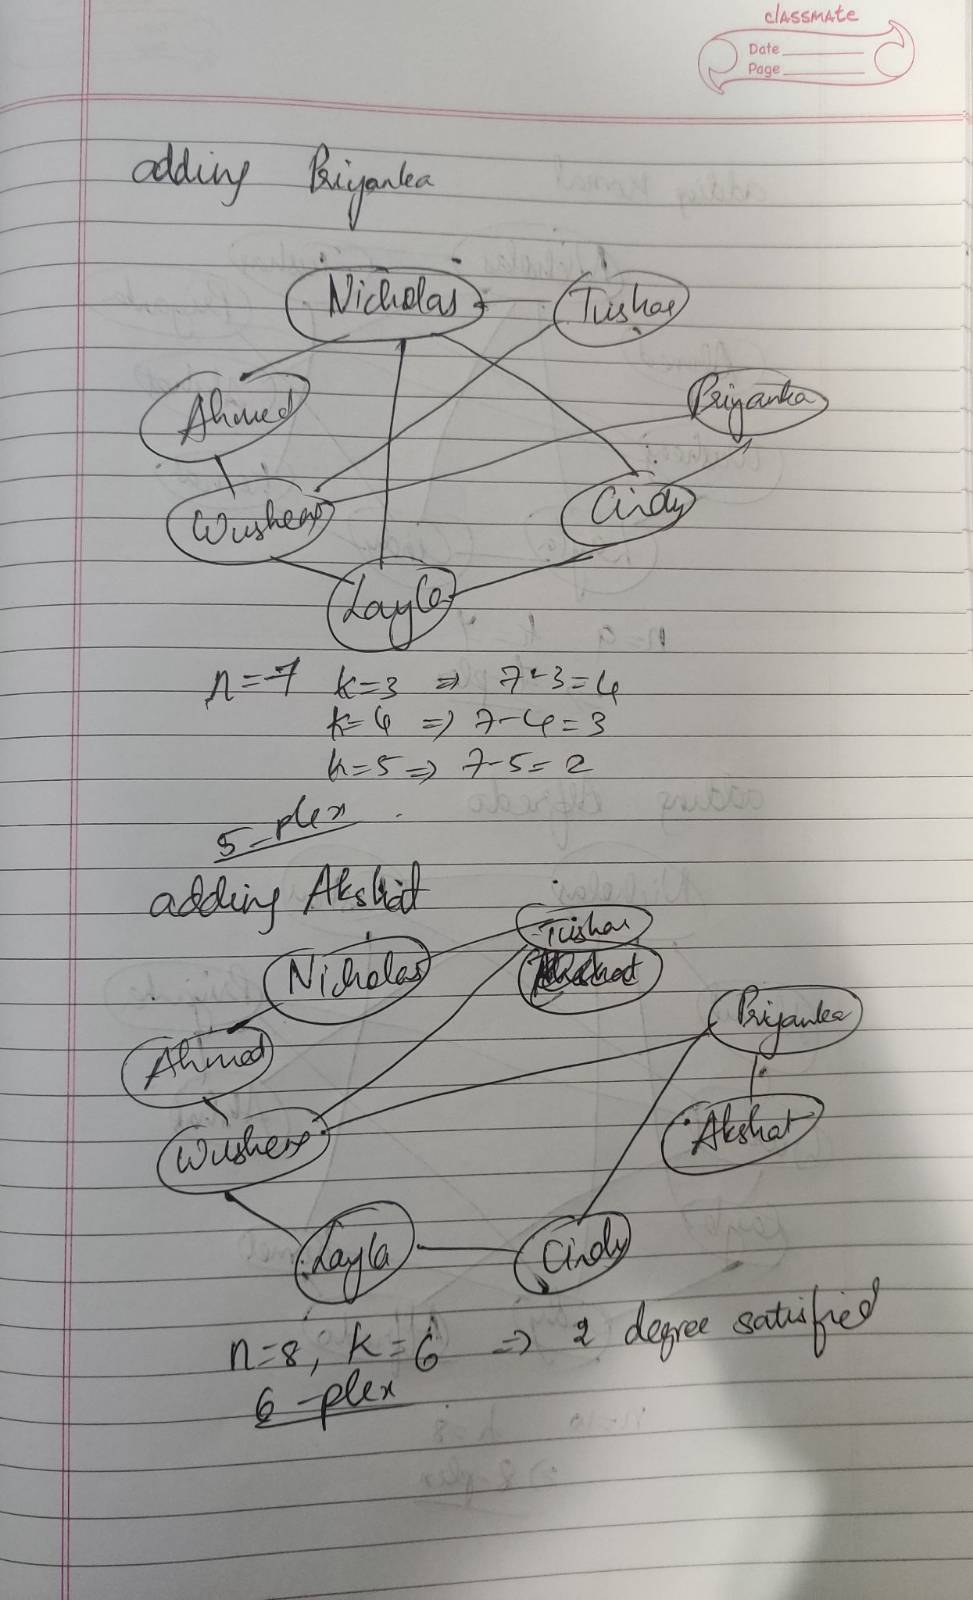 classmate
Date
Page
adding Priyanka
Nicholas Tushar
Ahmed Priyanka
Wushen Cindy
Layla
n=7 k=3 ⇒ 7-3=4
k=4 ⇒ 7-4=3
k=5 ⇒ 7-5=2
5-plex
adding Akshat
Tushar
Nicholas
Priyanka
Ahmed
Akshat
Wushen
Layla Cindy
n=8, k=6 ⇒ 2 degree satisfied
6-plex